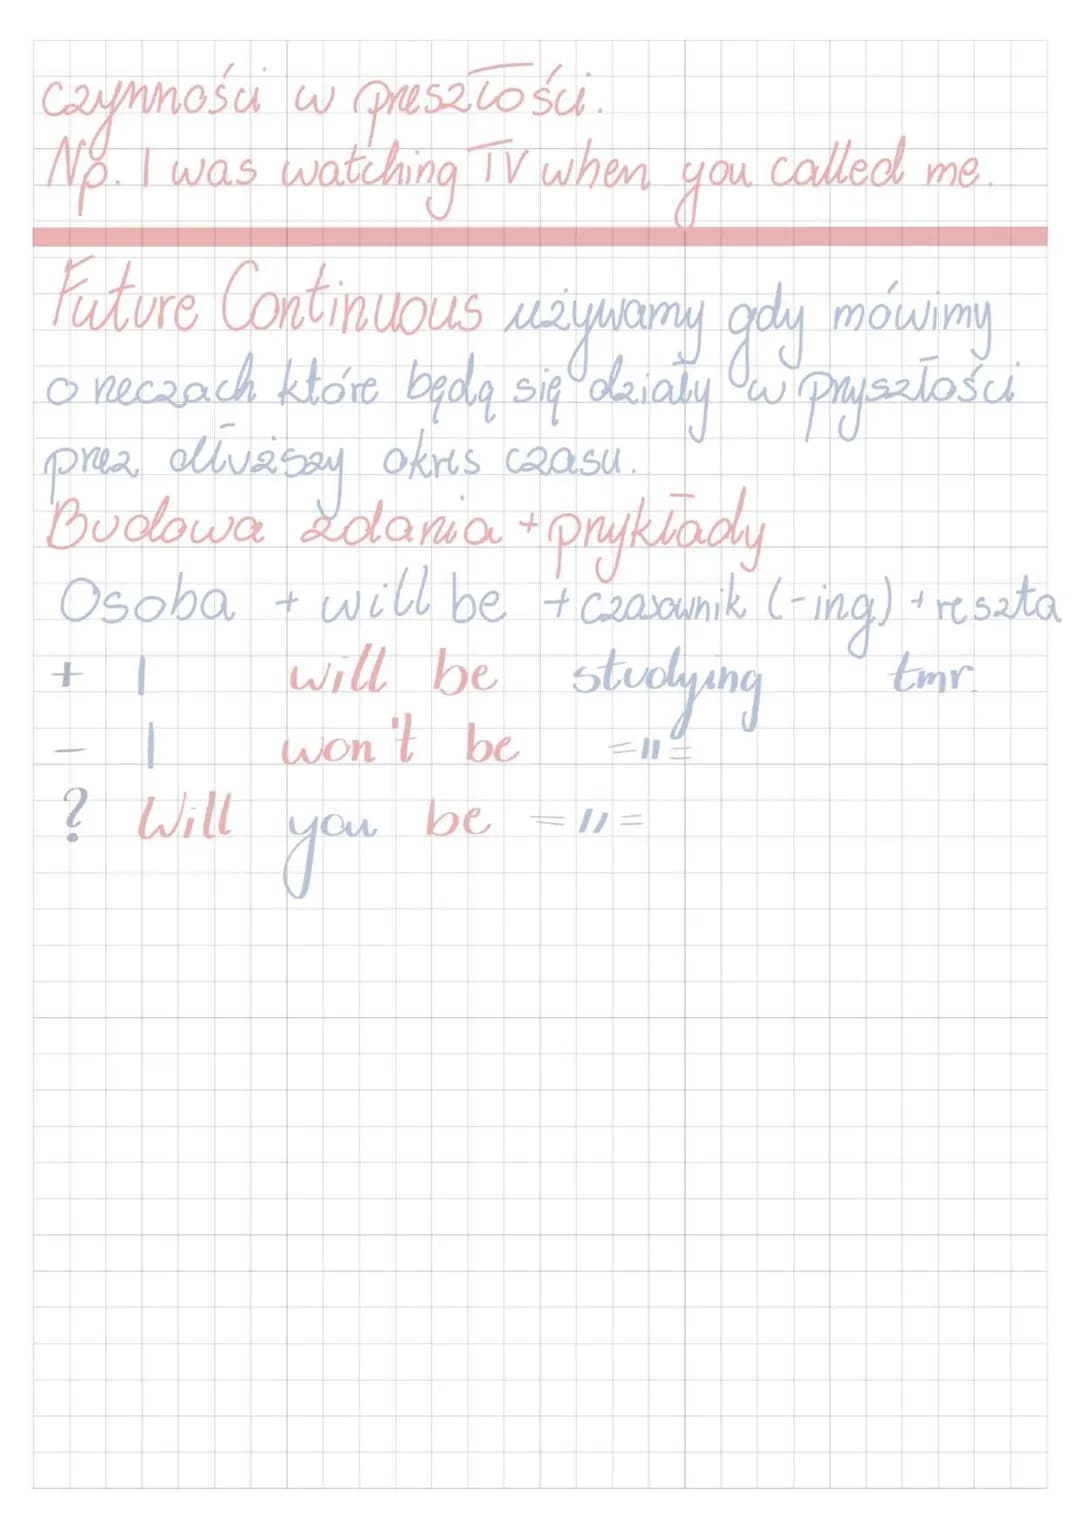 czynności w przeszłości.
Np. I was watching TV when you called me.
Future Continuous używamy gdy mówimy
o rzeczach które będą się działy w przyszłości
przez dłuższy okres czasu.
Budowa zdania + przykłady
Osoba + will be + czasownik (-ing) + reszta
+ I will be studying tmr.
- I won't be =||=
? Will you be =//=